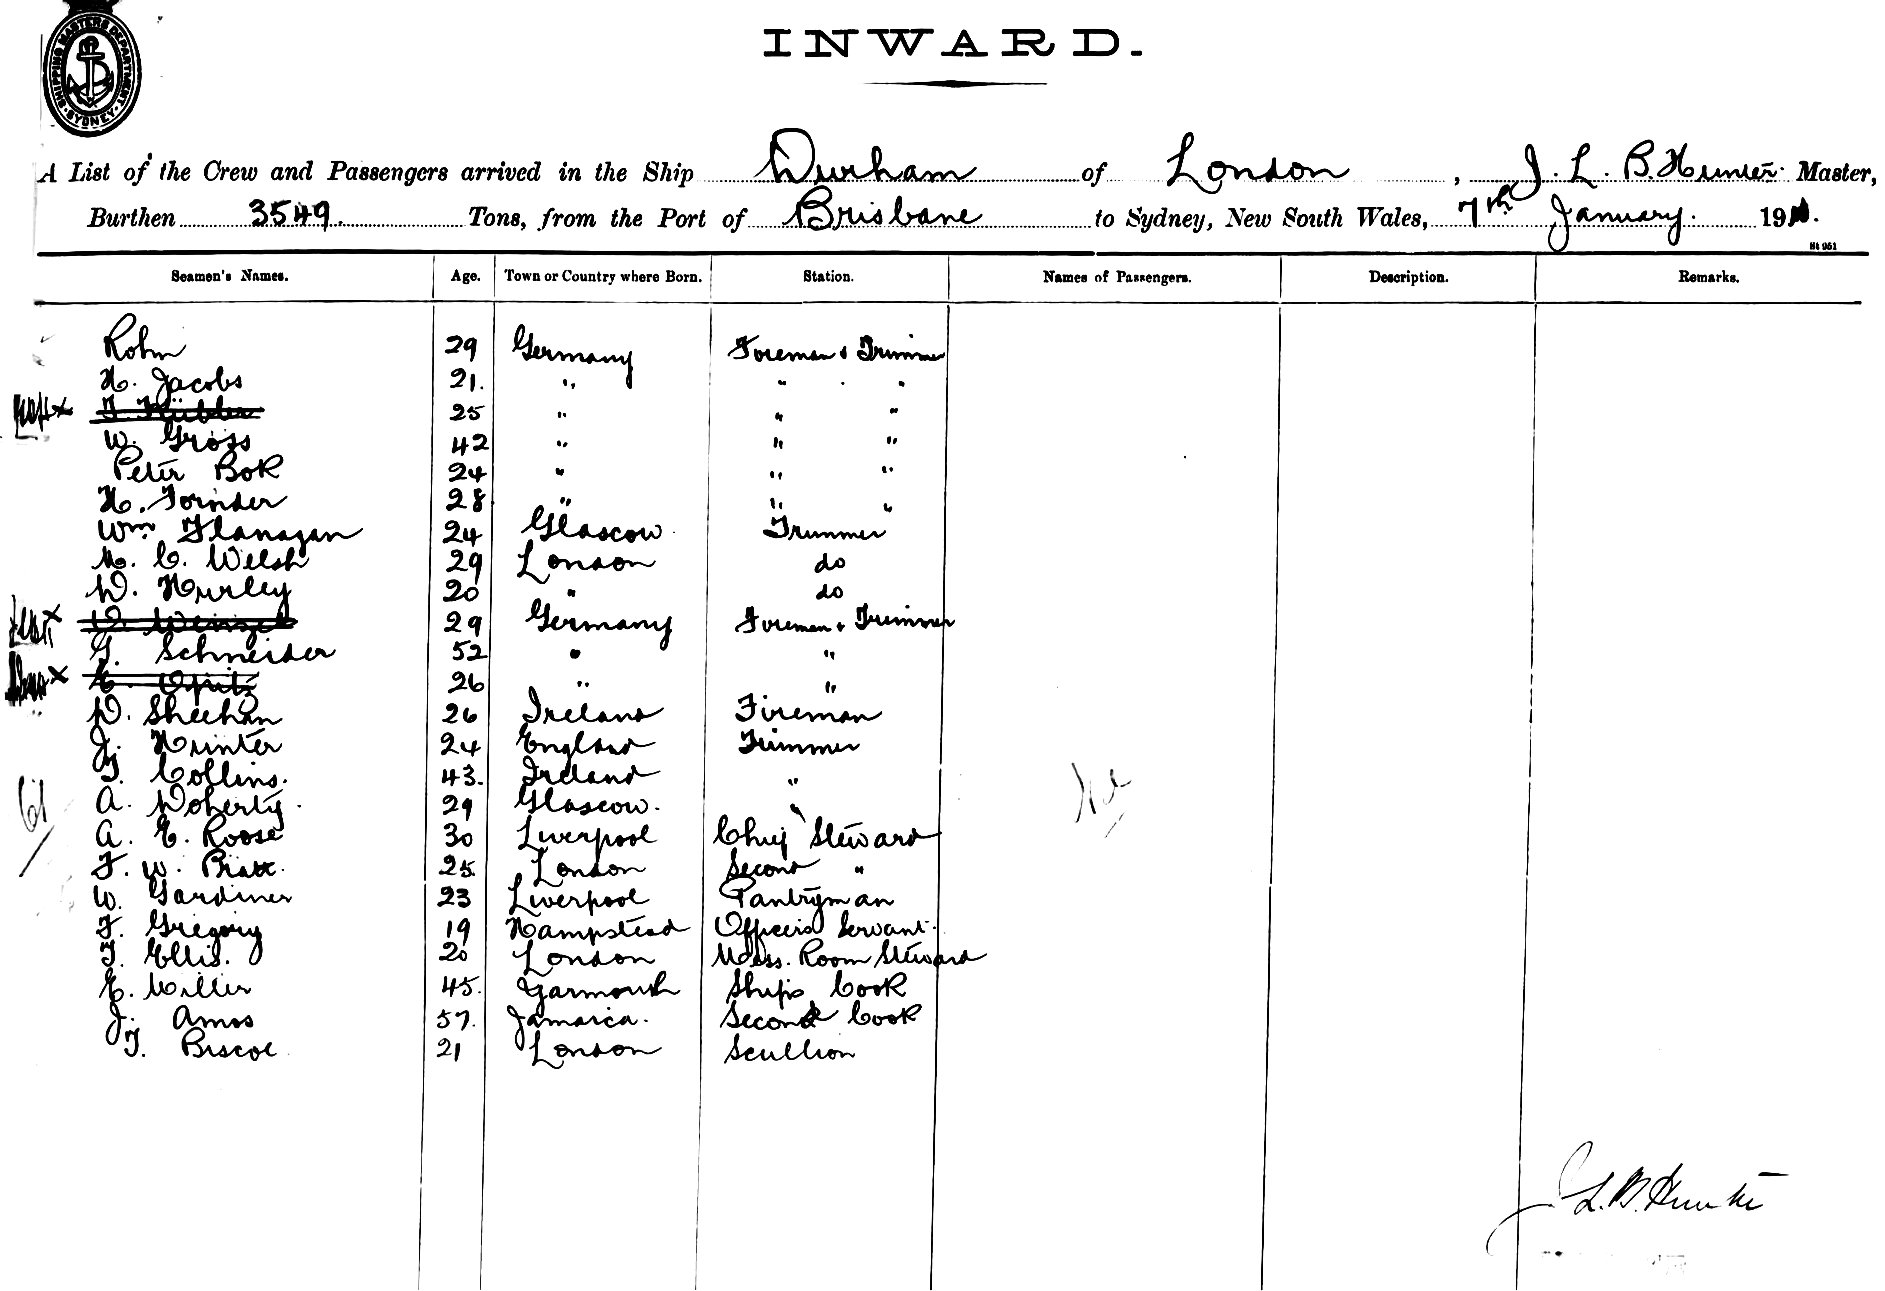 SHIPPING MASTERS DEPARTMENT. SYDNEY.
INWARD.
A List of the Crew and Passengers arrived in the Ship Durham of London, J. L. B. Hunter Master,
Burthen 3549. Tons, from the Port of Brisbane to Sydney, New South Wales, 7th January. 191
St 951
Seamen's Names. Age. Town or Country where Born. Station. Names of Passengers. Description. Remarks.
Rohm 29 Germany Foreman & Trimmer
H. Jacobs 21. " " "
25 " " "
W. Gross 42 " " "
Peter Bok 24 " " "
H. Fornder 28 " " "
Wm Flanagan 24 Glascow Trimmer
M. C. Welsh 29 London do
D. Hurley 20 " do
29 Germany Foreman & Trimmer
G. Schneider 52 " "
E. Opitz 26 " "
D. Sheehan 26 Ireland Fireman
J. Hunter 24 England Trimmer
T. Collins. 43. Ireland "
A. Doherty. 29 Glascow. "
61
A. E. Roose 30 Liverpool Chief Steward
F. W. 25 London Second "
W. Gardiner 23 Liverpool Pantryman
F. Gregory 19 Hampstead Officers Servant.
T. Ellis. 20 London Mess. Room Steward
E. Miller 45. Yarmouth Ships Cook
J. Amos 57. Jamaica. Second Cook
T. Biscoe 21 London Scullion
J. L. B. Hunter